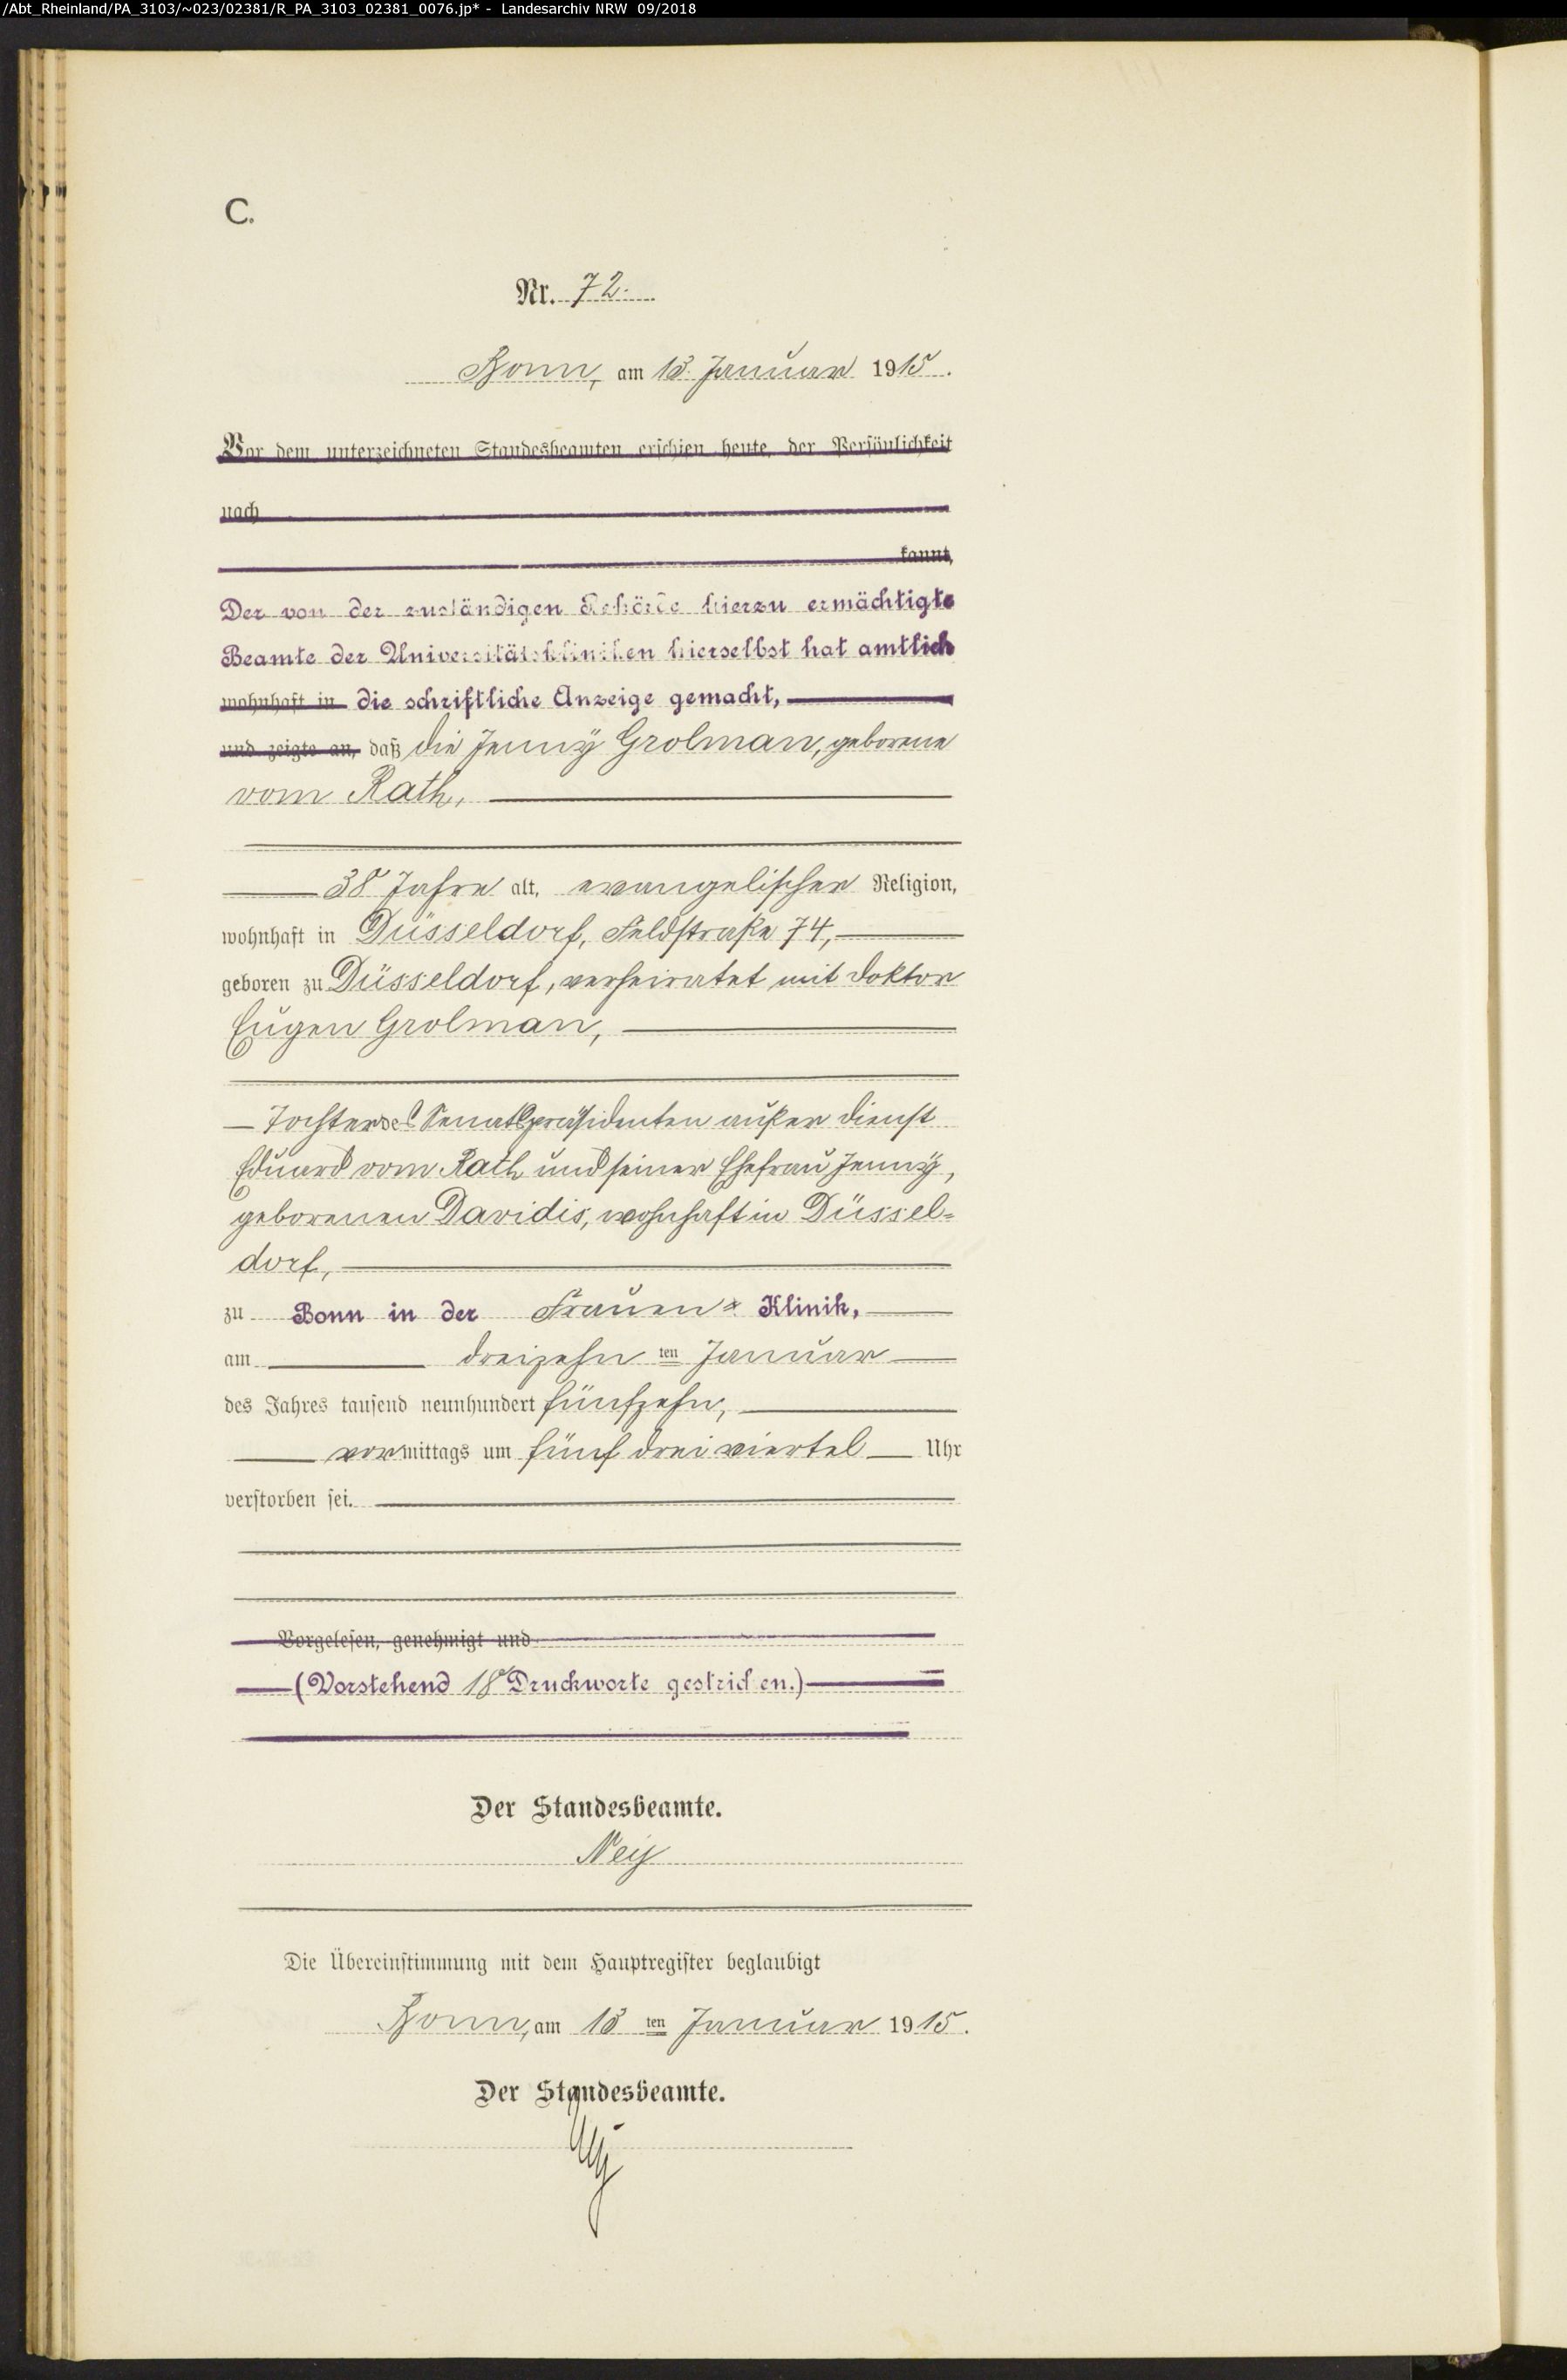 /Abt_Rheinland/PA_3103/~023/02381/R_PA_3103_02381_0076.jp* - Landesarchiv NRW 09/2018
C.
Nr. 72.
Bonn, am 13. Januar 1915.
Vor dem unterzeichneten Standesbeamten erschien heute, der Persönlichkeit
nach
kannt,
Der von der zuständigen Behörde hierzu ermächtigte
Beamte der Universitätskliniken hierselbst hat amtlich
wohnhaft in die schriftliche Anzeige gemacht,
und zeigte an, daß die Jenny Grolman, geborene
vom Rath,
38 Jahre alt, evangelischer Religion,
wohnhaft in Düsseldorf, Feldstraße 74,
geboren zu Düsseldorf, verheiratet mit Doktor
Eugen Grolman,
Tochter des Senatspräsidenten außer Dienst
Eduard vom Rath und seiner Ehefrau Jenny,
geborenen Davidis, wohnhaft in Düssel=
dorf,
zu Bonn in der Frauen= Klinik,
am dreizehn ten Januar
des Jahres tausend neunhundert fünfzehn,
vormittags um fünf drei viertel Uhr
verstorben sei.
Vorgelesen, genehmigt und
(Vorstehend 18 Druckworte gestrichen.)
Der Standesbeamte.
Ney
Die Übereinstimmung mit dem Hauptregister beglaubigt
Bonn, am 13 ten Januar 1915.
Der Standesbeamte.